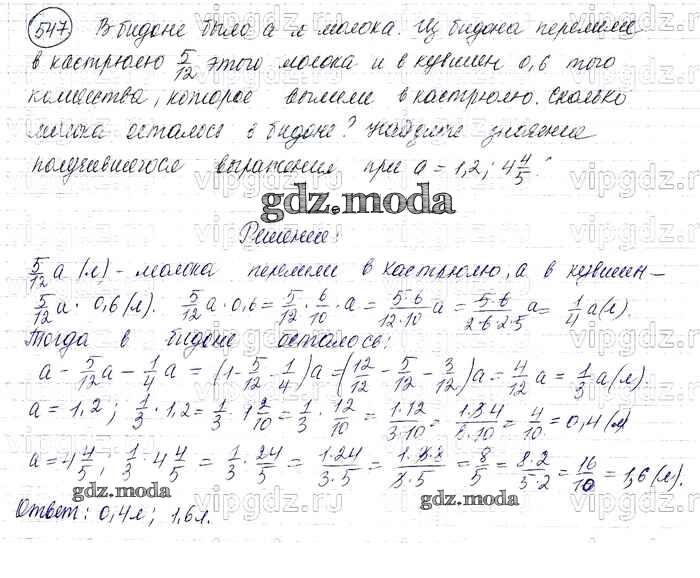 547 В бидоне было a л молока. Из бидона перелили
в кастрюлю 5/12 этого молока и в кувшин 0,6 того
количества, которое вылили в кастрюлю. Сколько
молока осталось в бидоне? Найдите значение
получившегося выражения при a = 1,2; 4 4/5.
gdz.moda
Решение:
5/12 a (л) - молока перелили в кастрюлю, а в кувшин —
5/12 a · 0,6 (л). 5/12 a · 0,6 = 5/12 · 6/10 · a = 5·6/12·10 a = 5·6/2·6·2·5 a = 1/4 a (л).
Тогда в бидоне осталось:
a - 5/12 a - 1/4 a = (1 - 5/12 - 1/4) a = (12/12 - 5/12 - 3/12) a = 4/12 a = 1/3 a (л).
a = 1,2; 1/3 · 1,2 = 1/3 · 1 2/10 = 1/3 · 12/10 = 1·12/3·10 = 4/10 = 0,4 (л)
a = 4 4/5; 1/3 · 4 4/5 = 1/3 · 24/5 = 1·24/3·5 = 1·3·8/3·5 = 8/5 = 8·2/5·2 = 16/10 = 1,6 (л).
gdz.moda gdz.moda
Ответ: 0,4 л; 1,6 л.
vipgdz.ru